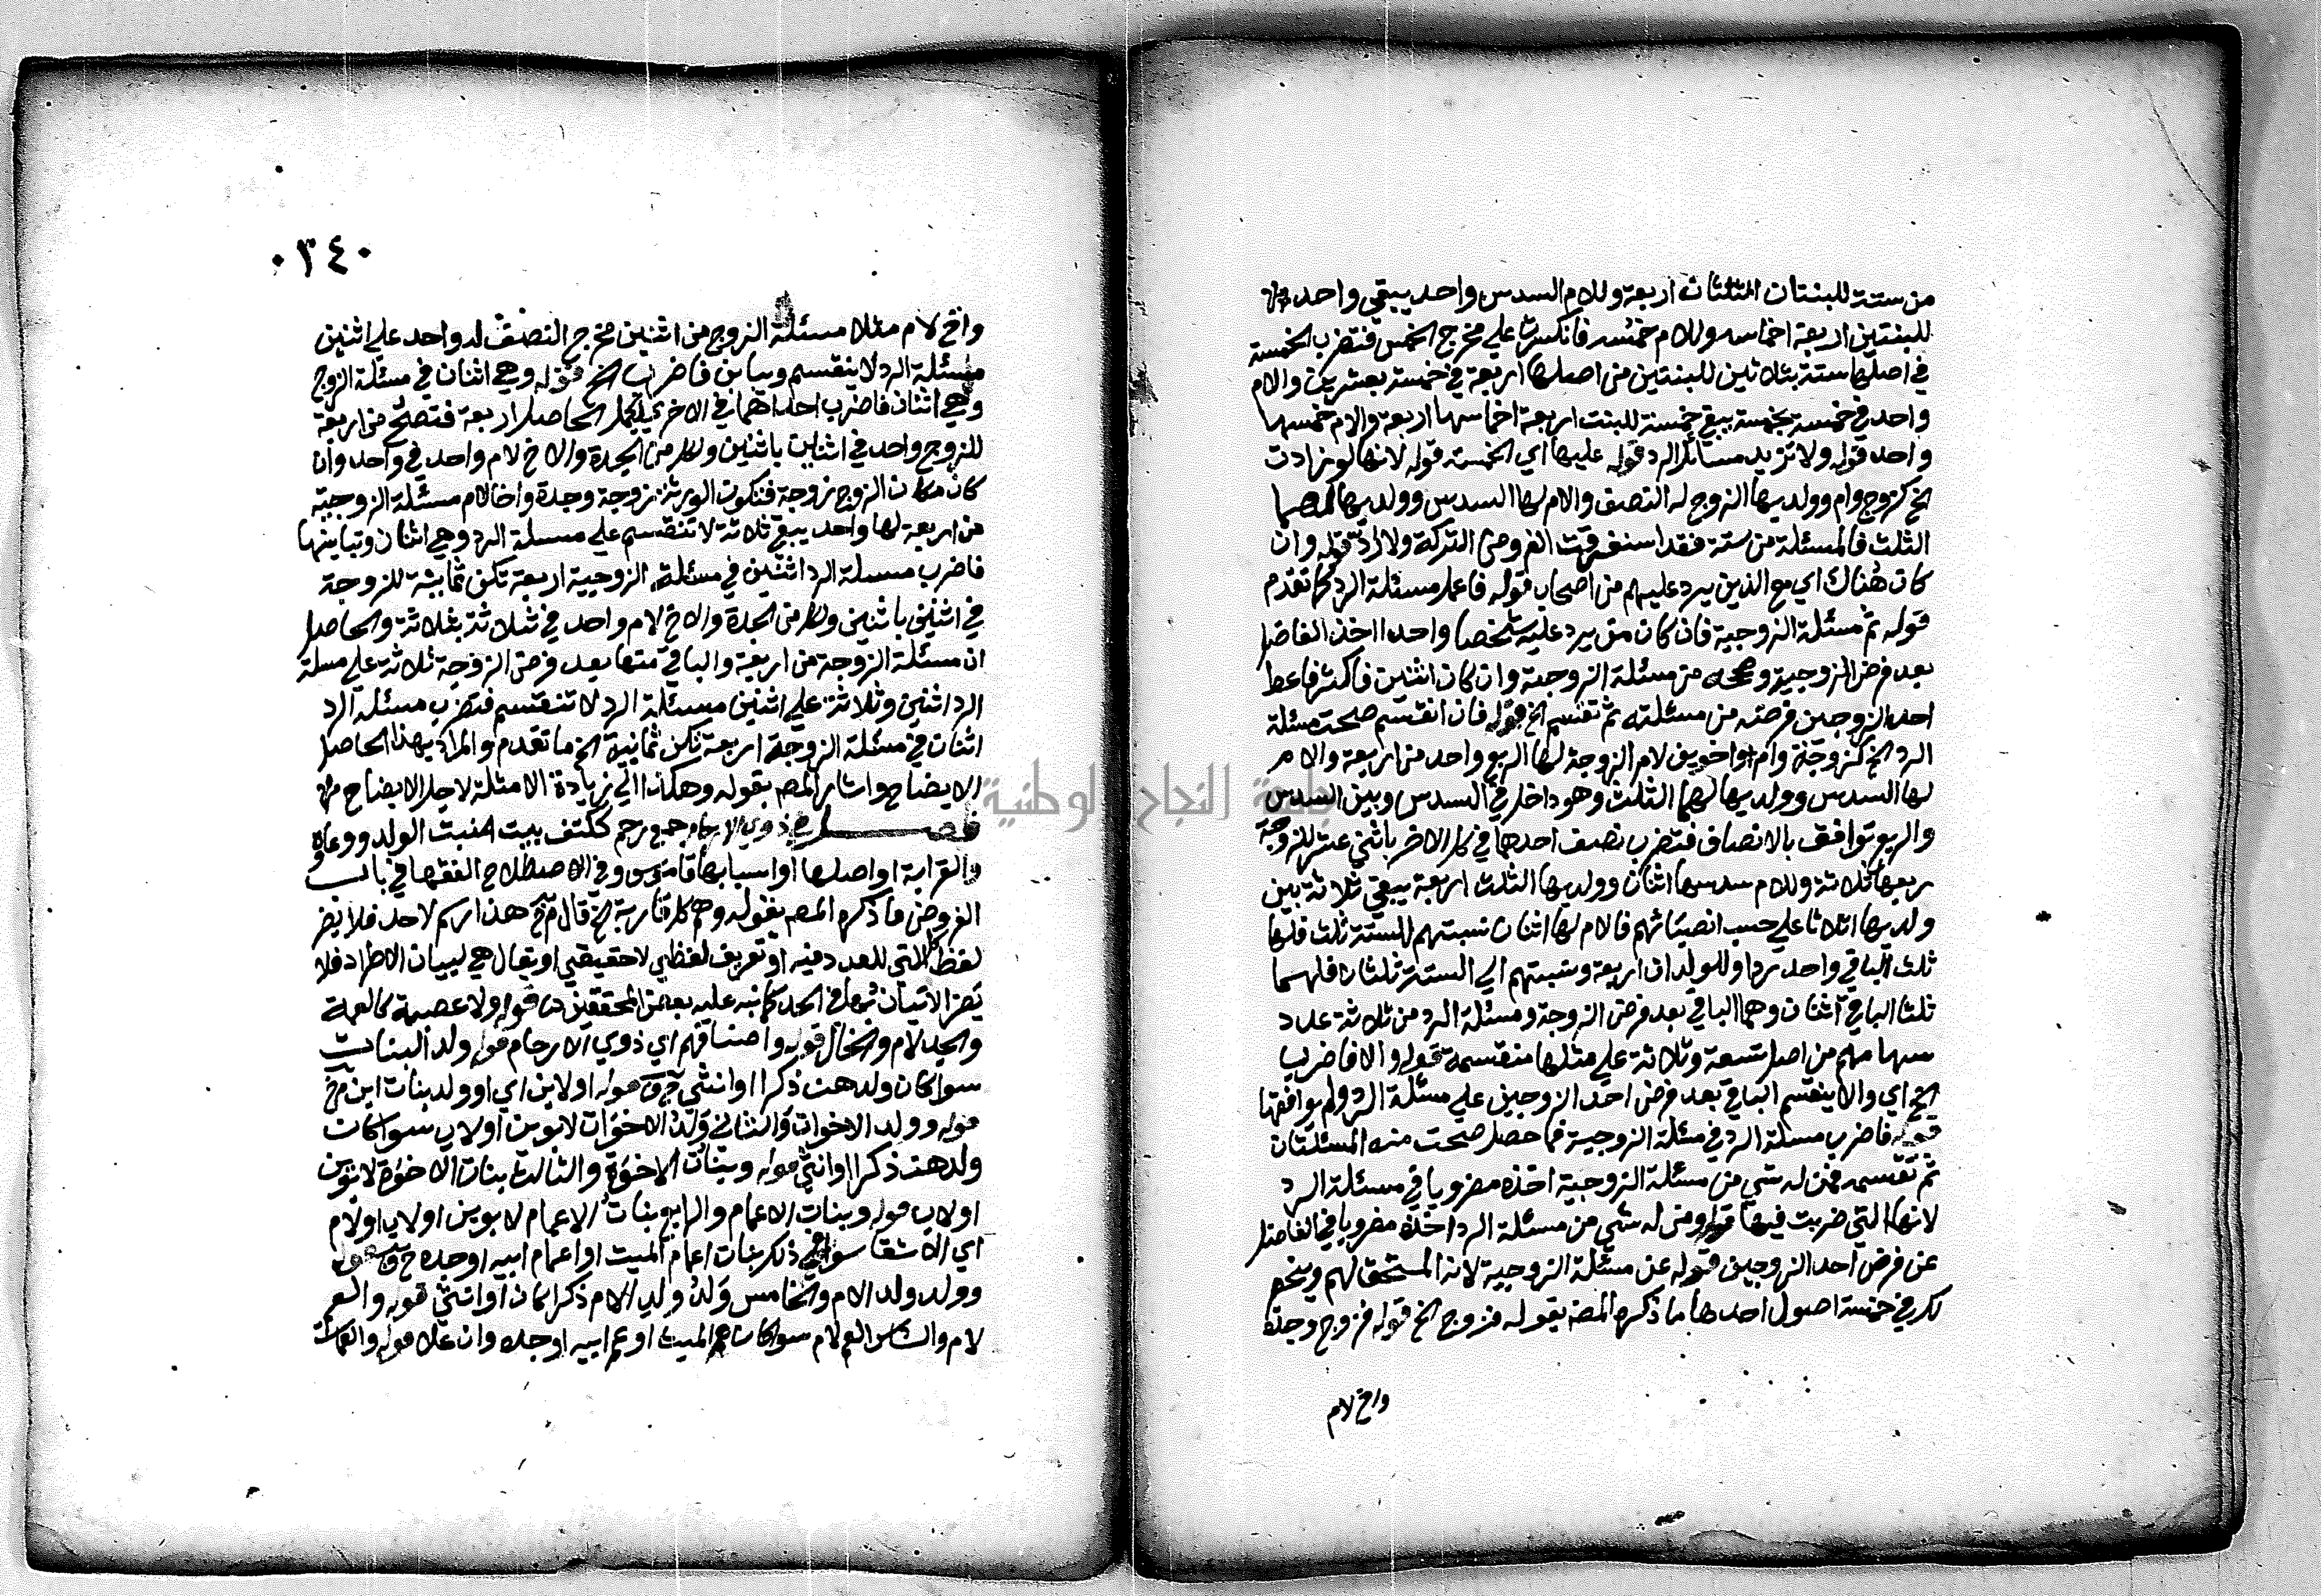 من ستة للبنتان الثلثان اربعة وللام السدس واحد يبقى واحد
للبنتين اربعة اخماسه وللام خمسه فانكسرت على مخرج الخمس فتضرب الخمسة
في اصلها ستة بثلاثين للبنتين من اصلها اربعة في خمسة بعشرين والام
واحد في خمسة بخمسة يبقى خمسة للبنت اربعة اخماسها اربعة والام خمسها
واحد قوله ولا تزيد مسائل الرد قوله عليها اي الخمسة قوله لانها لو زادت
الخ كزوج وام وولديها الزوج له النصف والام لها السدس وولديها لهما
الثلث فالمسئلة من ستة فقد استغرقت الفروض التركة ولا رد قوله وان
كان هناك اي مع الذين يرد عليهم من اصحاب قوله فاعمل مسئلة الرد كما تقدم
قوله ثم مسئلة الزوجية فان كان من يرد عليه شخصا واحدا اخذ الفاضل
بعد فرض الزوجية وصحه من مسئلة الزوجية وان كان اثنين فاكثر فاعط
احد الزوجين فرضه من مسئلته ثم تقسم الخ قوله فان انقسم صحت مسئلة
الرد الخ كزوجة وام واخوين لام الزوجة لها الربع واحد من اربعة والام
لها السدس وولديها لهما الثلث وهو داخل في السدس وبين السدس
والربع توافق بالانصاف فتضرب نصف احدهما في كل الاخر باثني عشر للزوجة
ربعها ثلاثة وللام سدسها اثنان وولديها الثلث اربعة يبقى ثلاثة بين
ولديها اثلاثا على حسب انصبائهم فالام لها اثنان نسبتهم للستة ثلث فلها
ثلث الباقي واحد ردا وللولدان اربعة ونسبتهم الى الستة ثلثان فلهما
ثلثا الباقي اثنان وهما الباقي بعد فرض الزوجة ومسئلة الرد من ثلاثة عدد
سهامهم من اصل تسعة وثلاثة على مثلها منقسمة قوله والا فاضرب
الخ اي والا ينقسم الباقي بعد فرض احد الزوجين على مسئلة الرد ولم يوافقها
قوله فاضرب مسئلة الرد في مسئلة الزوجية فما حصل صحت منه المسئلتان
ثم تقسمه فمن له شي من مسئلة الزوجية اخذه مضروبا في مسئلة الرد
لانها التي ضربت فيها قوله ومن له شي من مسئلة الرد اخذه مضروبا في الفاضل
عن فرض احد الزوجين قوله عن مسئلة الزوجية لانه المستحق لهم
في خمسة اصول احدها ما ذكره المصـ بقوله فزوج الخ قوله فزوج وجدة
واخ لام
٠٣٤٠
واخ لام مثلا مسئلة الزوج من اثنين مخرج النصف له واحد على اثنين
مسئلة الرد لا ينقسم ويباين فاضرب الخ قوله وهي اثنان في مسئلة الزوج
وهي اثنان فاضرب احداهما في الاخر الحاصل اربعة فتصح من اربعة
للزوج واحد في اثنين باثنين ولكل من الجدة والاخ لام واحد في واحد وان
كان مكان الزوج زوجة فتكون الورثة زوجة وجدة واخا لام مسئلة الزوجية
من اربعة لها واحد يبقى ثلاثة لا تنقسم على مسئلة الرد وهي اثنان وتباينها
فاضرب مسئلة الرد اثنين في مسئلة الزوجية اربعة تكن ثمانية للزوجة
في اثنين باثنين ولكل من الجدة والاخ لام واحد في ثلاثة بثلاثة والحاصل
ان مسئلة الزوجة من اربعة والباقي منها بعد فرض الزوجة ثلاثة على مسلة
الرد اثنين وثلاثة على اثنين مسئلة الرد لا تنقسم فتضرب مسئلة الرد
اثنان في مسئلة الزوجة اربعة تكن ثمانية الخ ما تقدم والمراد بهذا الحاصل
الايضاح واشار المصـ بقوله وهكذا الى زيادة الامثلة لاجل الايضاح
فصل في ذوي الارحام جمع رحم ككتف بيت منبت الولد ووعاه
والقرابة او اصلها او اسبابها قاموس وفي الاصطلاح الفقها في باب
الفروض ما ذكره المصـ بقوله وهم كل قرابة الخ قال م خ هذا رسم لا حد فلا يضر
لفظ كل التي للعدد فيه او تعريف لفظي لا حقيقي او يقال هي لبيان الاطراد فلا
يضر الاتيان بها في الحد كما نبه عليه بعض المحققين قوله ولا عصبة كالعمة
والجد لام والخال قوله واصنافهم اي ذوي الارحام قوله ولد البنات
سوا كان ولدهن ذكرا او انثى قوله او لابن اي او ولد بنات ابن م خ
قوله وولد الاخوات والثاني ولد الاخوات لابوين او لاب سوا كان
ولدهن ذكرا او انثى قوله وبنات الاخوة والثالث بنات الاخوة لابوين
او لاب قوله وبنات الاعمام والرابع بنات الاعمام لابوين او لاب او لام
اي الاشقا سوا في ذلك بنات اعمام الميت او اعمام ابيه او جده قوله
وولد ولد الام والخامس ولد ولد الام ذكرا كان او انثى قوله والعم
لام والسادس العم لام سوا كان عم الميت او عم ابيه او جده وان علا قوله والعمات